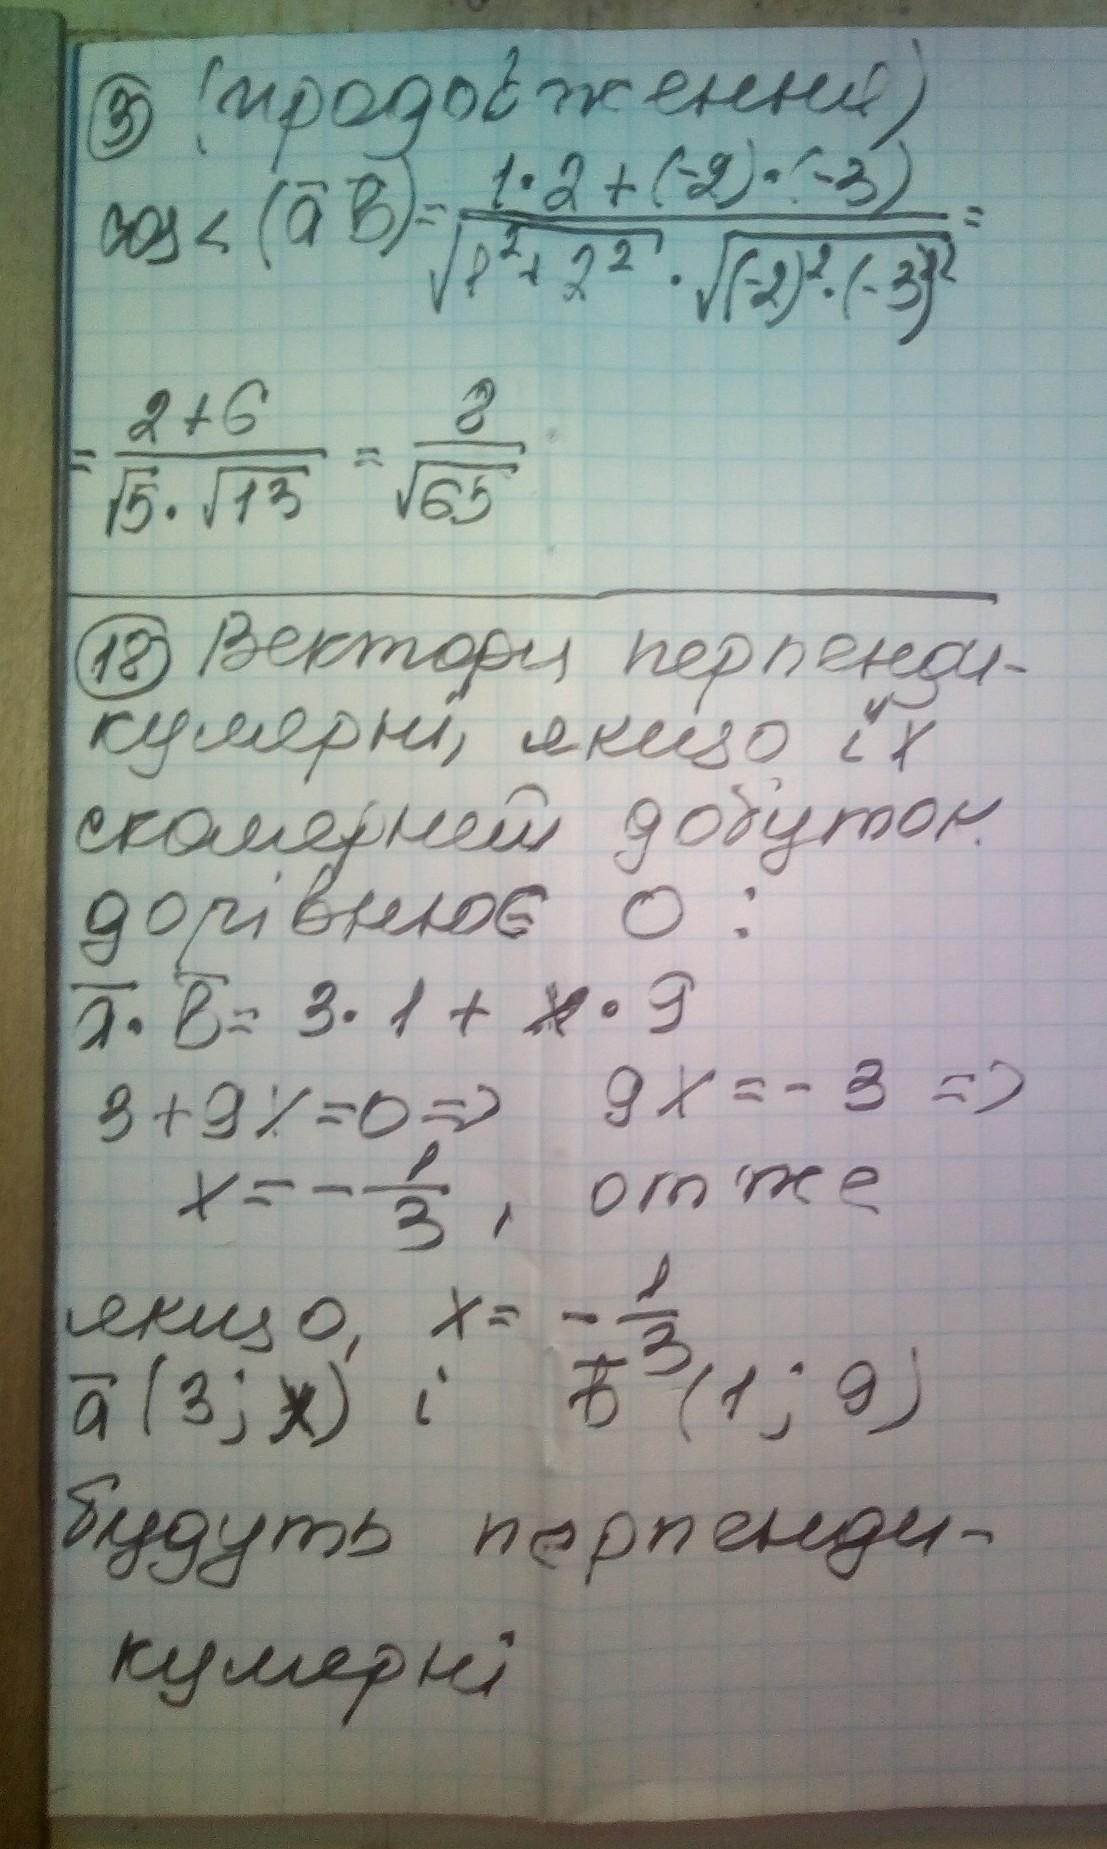 ③ (продовження)
cos < (a̅ b̅) = (1·2 + (-2)·(-3)) / (√(1² + 2²) · √((-2)²·(-3)²)) =
= (2+6) / (√5 · √13) = 8 / √65
⑱ Вектори перпенди-
кулярні, якщо їх
скалярний добуток
дорівнює 0 :
a̅ · b̅ = 3·1 + x·9
3+9x=0 => 9x=-3 =>
x = -1/3, отже
якщо, x = -1/3
a̅ (3; x) і b̅ (1; 9)
будуть перпенди-
кулярні